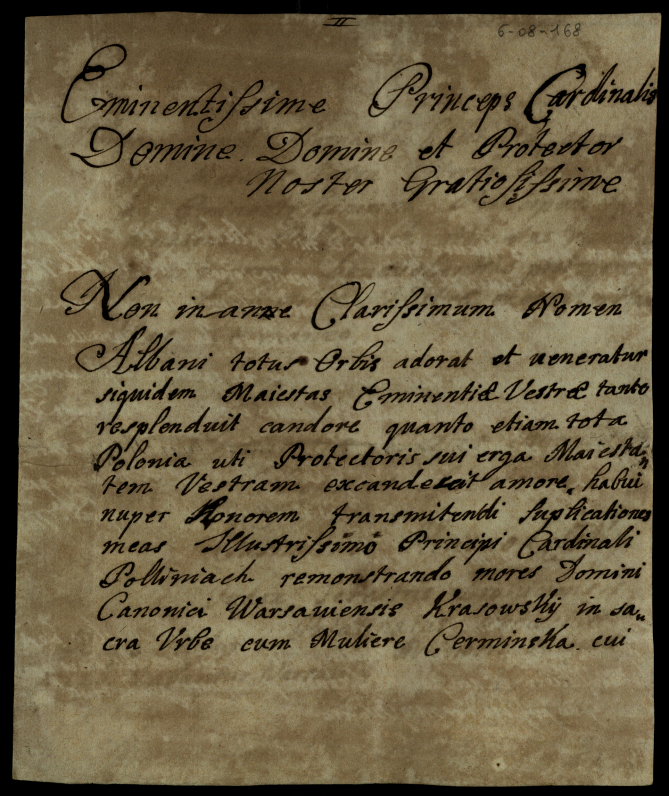 II
6-08-168
Eminentissime Princeps Cardinalis
Domine Domine et Protector
Noster Gratiosissime
Non in anne Clarissimum Nomen
Albani totus Orbis adorat et veneratur
siquidem Maiestas Eminentiæ Vestræ tanto
resplenduit candore quanto etiam tota
Polonia uti Protectoris sui erga Maiesta„
tem Vestram excandescit amore, habui
nuper Honorem transmitendi suplicationes
meas Illustrissimo Principi Cardinali
Polliniach remonstrando mores Domini
Canonici Warsauiensis Krasowskij in sa„
cra Vrbe cum Muliere Cerminska. cui